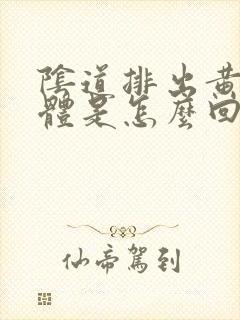 陰道排出黃
體是怎麼回
仙帝駕到